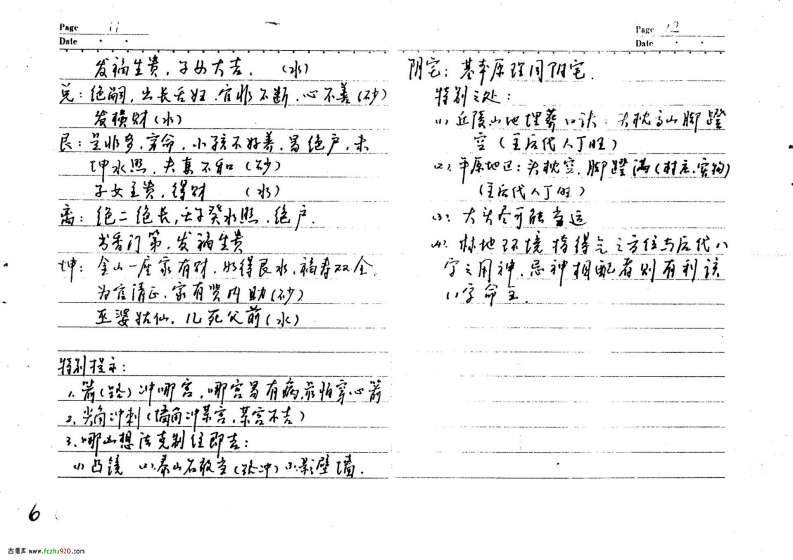 Page 11
Date
发福生贵，子女大吉. (水)
兑：绝嗣，出长舌妇.官非不断.心不善(砂)
发横财(水)
艮：是非多，穿命，小孩不好养，易绝户，未
坤水照，夫妻不和 (砂)
子女主贵，得财 (水)
离：绝二绝长，壬子癸水照，绝户.
书香门第，发福生贵
坤：金山一座家有财，如得艮水，福寿双全.
为官清正，家有贤内助(砂)
巫婆妖仙，儿死父前(水)
特别提示：
1、箭(路)冲哪宫，哪宫易有病，最怕穿心箭
2、尖角冲刺(墙角冲某宫，某宫不吉)
3、哪凶想法克制住即吉：
(1)凸镜 (2)泰山石敢当(路冲) (3)影壁墙.
6
Page 12
Date
阴宅：基本原理同阳宅.
特别之处：
(1) 丘陵山地埋葬口诀：头枕高山脚蹬
空 (主后代人丁旺)
(2) 平原地区：头枕空，脚蹬满(村庄.实物)
(主后代人丁旺)
(3) 大头尽可能当运
(4) 林地环境择得气之方位与后代八
字之用神、忌神相配者则有利该
八字命主
吉星库 www.fczhy920.com